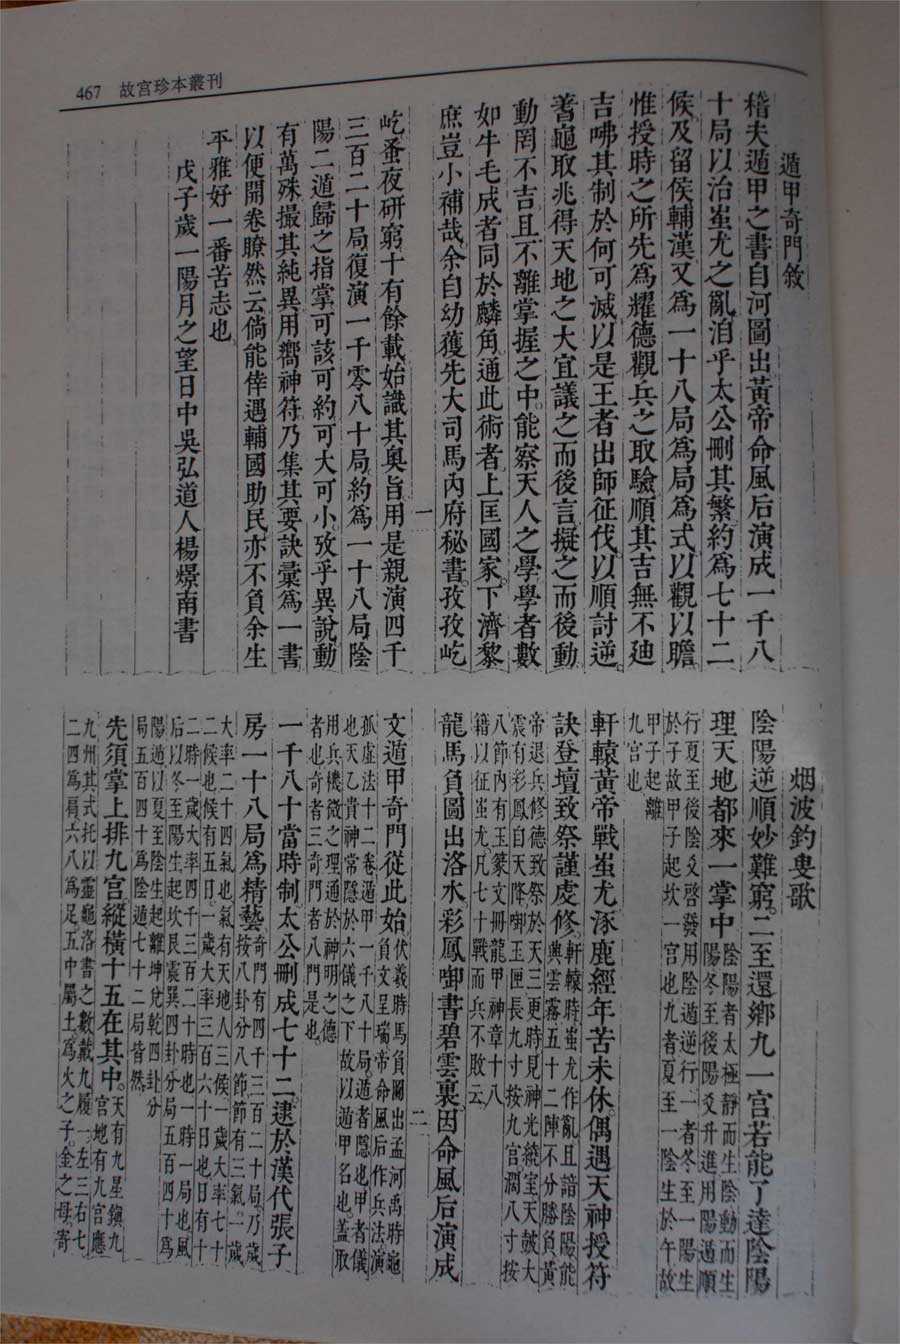 467 故宮珍本叢刊
遁甲奇門敘
稽夫遁甲之書自河圖出黃帝命風后演成一千八
十局以治蚩尤之亂洎乎太公刪其繁約為七十二
候及留侯輔漢又為一十八局為局為式以觀以瞻
惟授時之所先為耀德觀兵之取驗順其吉無不廸
吉咈其制於何可滅以是王者出師征伐以順討逆
蓍龜取兆得天地之大宜議之而後言擬之而後動
動罔不吉且不離掌握之中能察天人之學學者數
如牛毛成者同於麟角通此術者上匡國家下濟黎
庶豈小補哉余自幼獲先大司馬內府秘書孜孜屹
一
屹蚤夜研窮十有餘載始識其奧旨用是親演四千
三百二十局復演一千零八十局約為一十八局陰
陽二遁歸之指掌可該可約可大可小攷乎異說動
有萬殊撮其純異用嚮神符乃集其要訣彙為一書
以便開卷瞭然云倘能倖遇輔國助民亦不負余生
平雅好一番苦志也
戊子歲一陽月之望日中吳弘道人楊燝南書
烟波釣叟歌
陰陽逆順妙難窮二至還鄉九一宮若能了達陰陽
理天地都來一掌中
陰陽者太極靜而生陰動而生
陽冬至後陽爻升進用陽遁順
行夏至後陰爻啓發用陰遁逆行一者冬至一陽生
於子故甲子起坎一宮也九者夏至一陰生於午故
甲子起離
九宮也
軒轅黃帝戰蚩尤涿鹿經年苦未休偶遇天神授符
訣登壇致祭謹虔修
軒轅時蚩尤作亂且諳陰陽能
興雲霧五十二陣不分勝負黃
帝退兵修德致祭於天三更時見神光繞室天鼓大
震有彩鳳自天降啣玉匣長九寸按九宮濶八寸按
八節內有玉篆文冊龍甲神章十八
籍以征蚩尤凡七十戰而兵不敗云
龍馬負圖出洛水彩鳳啣書碧雲裏因命風后演成
二
文遁甲奇門從此始
伏羲時馬負圖出孟河禹時龜
負文呈瑞帝命風后作兵法演
孤虛法十二卷遁甲一千八十局遁者隱也甲者儀
也天乙貴神常隱於六儀之下故以遁甲名也蓋取
用兵機微之理通於神明之德
者也奇者三奇門者八門是也
一千八十當時制太公刪成七十二逮於漢代張子
房一十八局為精藝
奇門有四千三百二十局乃歲
按八卦分八節節有三氣一歲
大率二十四氣也氣有天地人三候一歲大率七十
二候也候有五日一歲大率三百六十日也日有十
二時一歲大率四千三百二十時也一時一局也風
后以冬至陽生起坎艮震巽四卦分局五百四十為
陽遁以夏至陰生起離坤兌乾四卦分
局五百四十為陰遁七十二局皆然
先須掌上排九宮縱橫十五在其中
天有九星鎮九
宮地有九宮應
九州其式托以靈龜洛書之數戴九履一左三右七
二四為肩六八為足五中屬土為火之子金之母寄